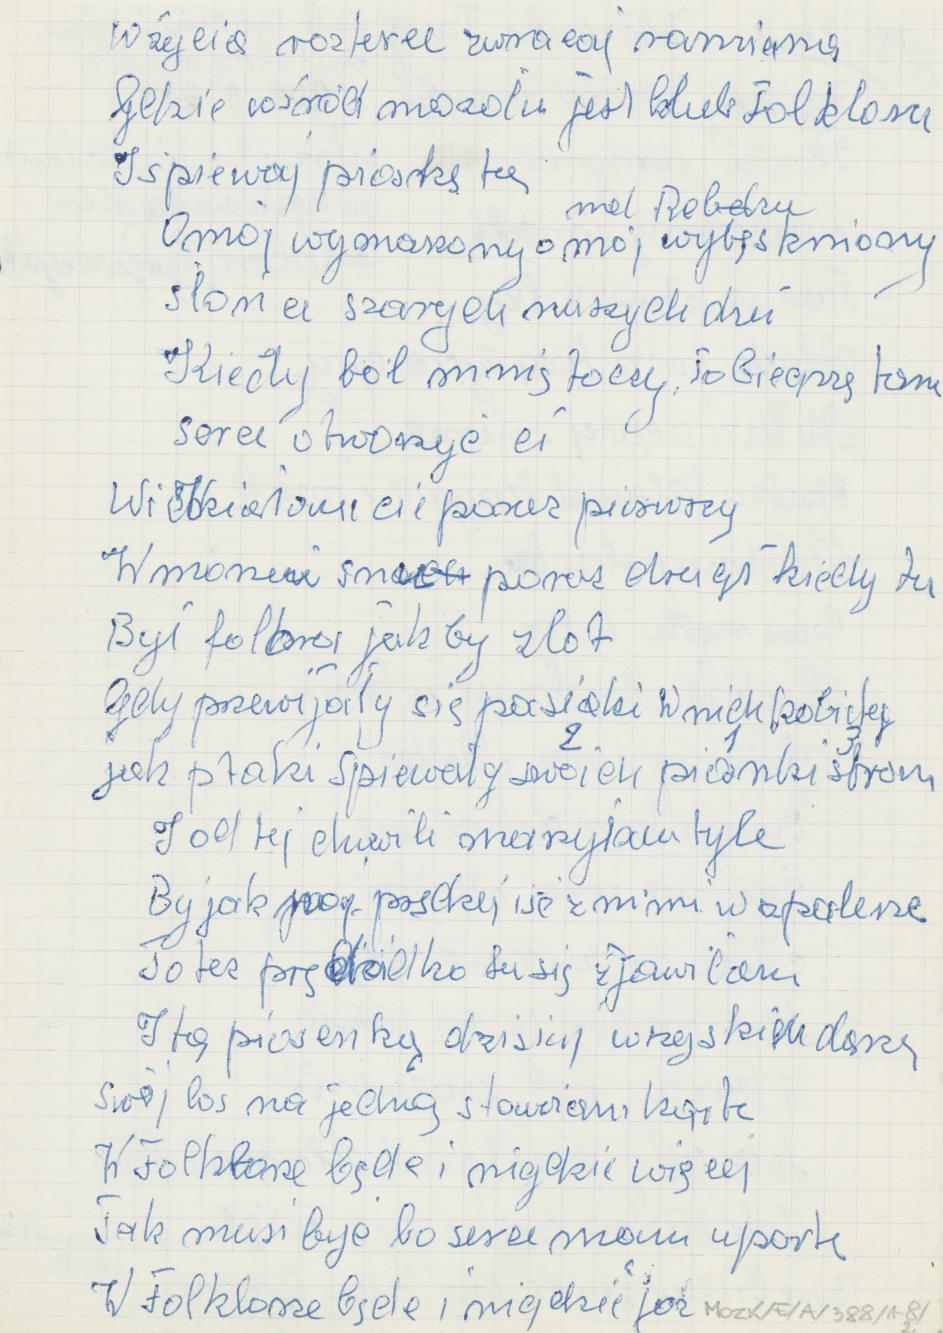 W życia rozterce zwracaj ramiona
Gdzie wśród mozołu jest klub Folkloru
I śpiewaj piosnkę tę
nad Rabdzu
O mój wymarzony o mój wytęskniony
słońce szarych naszych dni
Kiedy ból mnie toczy, Tobie pragnę tam
serce otworzyć ci
Widziałam cie poraz pierwszy
W moram snach poraz drugi kiedy tu
Był folklor jakby zlot
Gdy przewijały się pasiaki W nich kobitej
2 1 3
jak ptaki śpiewały swoich piosnki stron
I od tej chwili marzyłam tyle
By jak prędkej iść z nimi w zpalerze
Toteż prędziutko tu się zjawiłam
I tą piosenką dzisiaj wszystkich darzę
Swój los na jedną stawiam kartę
W Folklorze będe i nigdzie więcej
Tak musi być bo serce mam uparte
W Folklorze będe i nigdzie już
MOZK/E/A/388/1-8/
2.